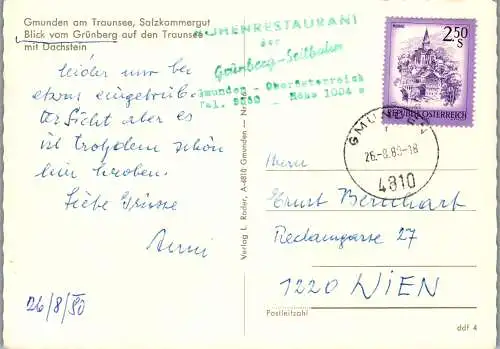 Gmunden am Traunsee, Salzkammergut
Blick vom Grünberg auf den Traunsee
mit Dachstein
HÖHENRESTAURANT
der
Grünberg-Seilbahn
Gmunden - Oberösterreich
Tel. - Höhe 1004 m
leider nur bei
etwas eingetrübter
Sicht aber es
ist trotzdem schön
hier heroben.
Liebe Grüsse
Anni
26/8/80
Verlag L. Rader, A-4810 Gmunden - Nr.
2,50
S
REPUBLIK ÖSTERREICH
GMUNDEN
26.-8.80-18
4810
Herrn
Ernst Bernhart
Reclamgasse 27
1220 WIEN
Postleitzahl
ddf 4